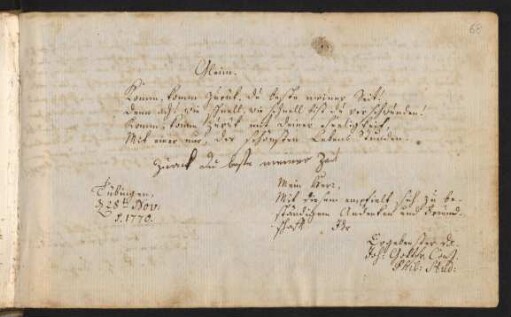 Gleim.
Komm, komm zurük, du beste meiner Zeit!
denn ach, wie schnell, wie schnell bist du verschwunden!
Komm, komm zurük mit deiner Herrlichkeit
Mit einer nur, der schönsten Lebens Stunden.
zurück du beste meiner Zeit
Tübingen,
d 28ten Nov.
1770.
Mein Herr,
Mit diesem empfielt sich zu be-
ständigem Andenken und Freund-
schafft Ihr
Ergebenster Dr.
Joh. Gottfr.
Phil: Stud: